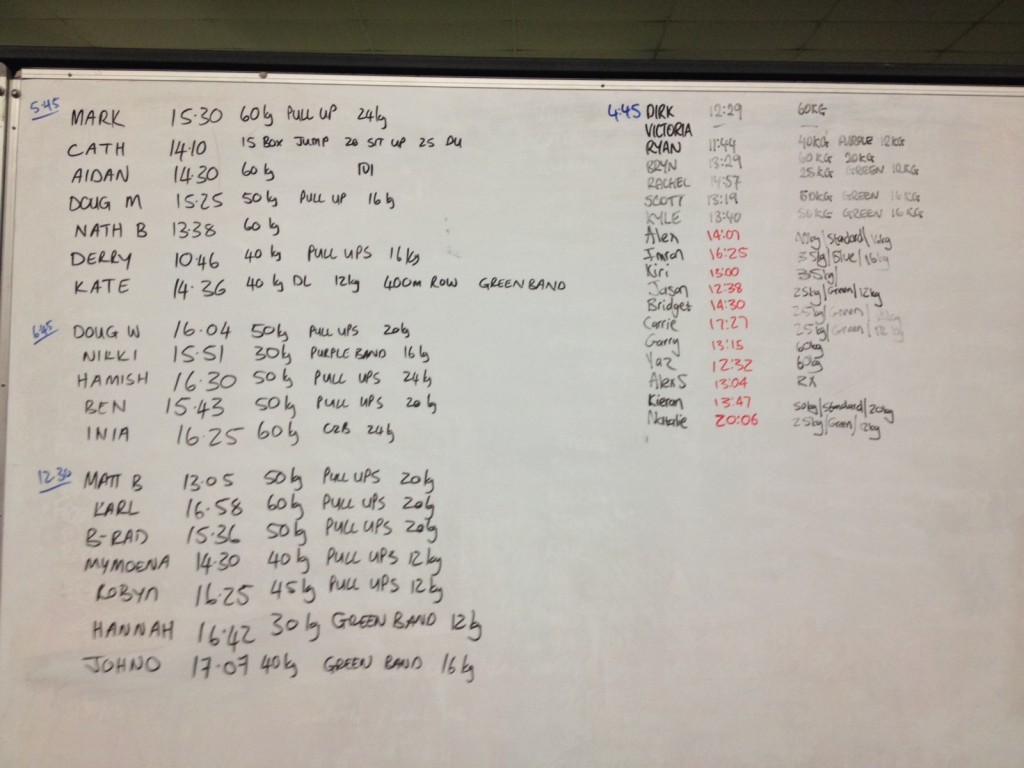 5:45 MARK 15.30 60kg PULL UP 24kg
CATH 14.10 15 BOX JUMP 20 SIT UP 25 DU
AIDAN 14.30 60kg
DOUG M 15.25 50kg PULL UP 16kg
NATH B 13.38 60kg
DERRY 10.46 40kg PULL UPS 16kg
KATE 14.36 40kg DL 12kg 400M ROW GREEN BAND
6:45 DOUG W 16.04 50kg PULL UPS 20kg
NIKKI 15.51 30kg PURPLE BAND 16kg
HAMISH 16.30 50kg PULL UPS 24kg
BEN 15.43 50kg PULL UPS 20kg
INIA 16.25 60kg C2B 24kg
12.30 MATT B 13.05 50kg PULL UPS 20kg
KARL 16.58 60kg PULL UPS 20kg
B-RAD 15.36 50kg PULL UPS 20kg
MYMOENA 14.30 40kg PULL UPS 12kg
ROBYN 16.25 45kg PULL UPS 12kg
HANNAH 16.42 30kg GREEN BAND 12kg
JOHNO 17.07 40kg GREEN BAND 16kg
4:45 DIRK 12:29 60KG
VICTORIA –
RYAN 11:44 40KG PURPLE 12KG
BRYN 13:29 60KG 20KG
RACHEL 14:57 25KG GREEN 12KG
SCOTT 13:19 50KG GREEN 16KG
KYLE 13:40 50KG GREEN 16KG
Alex 14:07 Standard
Imran 16:25 35kg/Blue/16kg
Kiri 13:00 35kg/
Jason 12:38 25kg/Green/12kg
Bridget 14:30 25kg/Green/
Carrie 17:27 25kg/Green/12kg
Garry 13:15 60kg
Yaz 12:32 60kg
Alex S 13:04 RX
Kieran 13:47 50kg/Standard/20kg
Natalie 20:06 25kg/Green/12kg